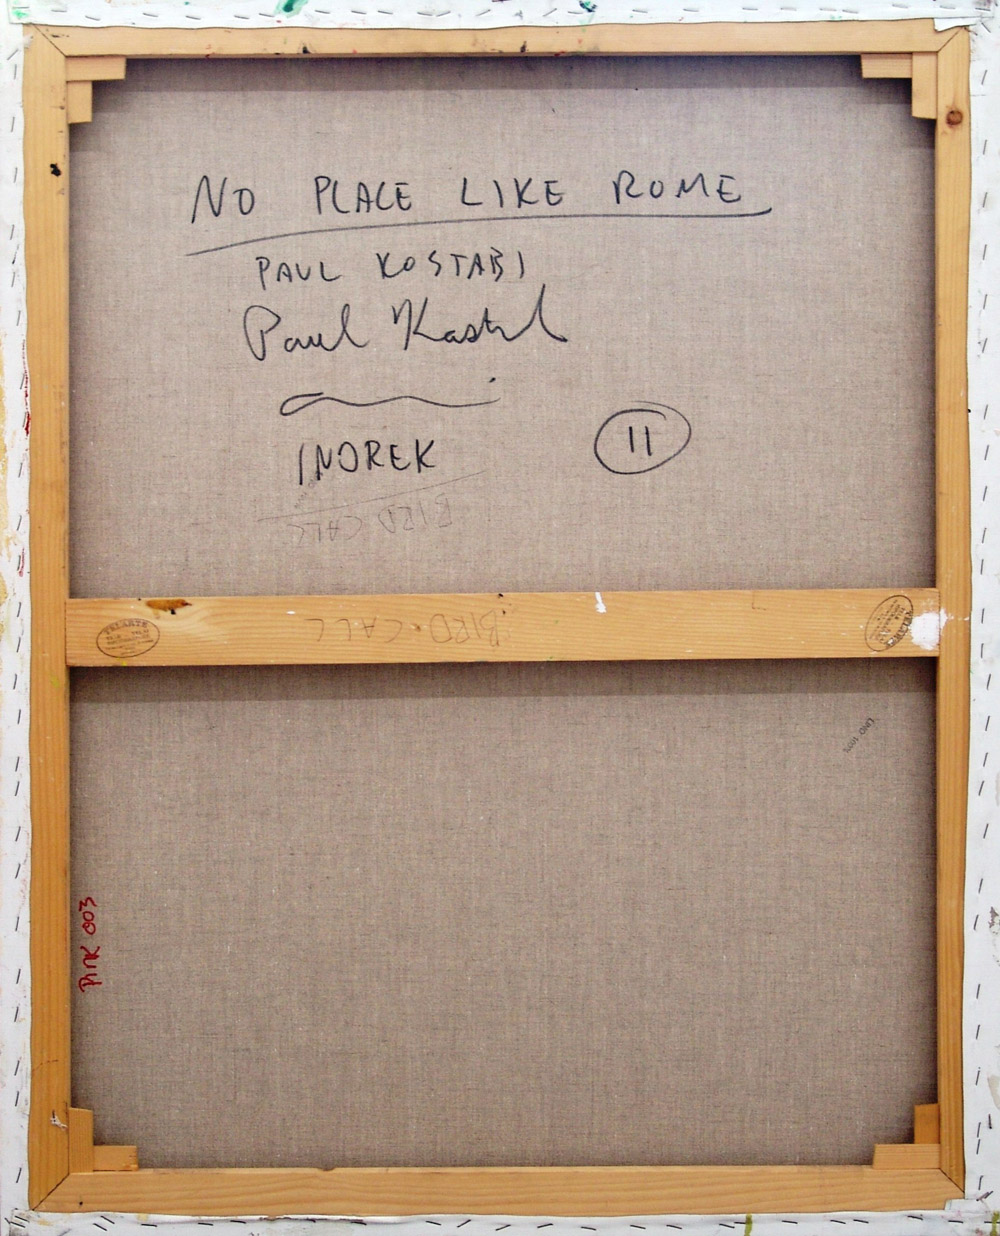 NO PLACE LIKE ROME
PAUL KOSTABI
Paul Kostabi
INOREK
11
BIRD CALL
BIRD CALL
TELARTE
TELARTE
LINO 100%
PINK 003